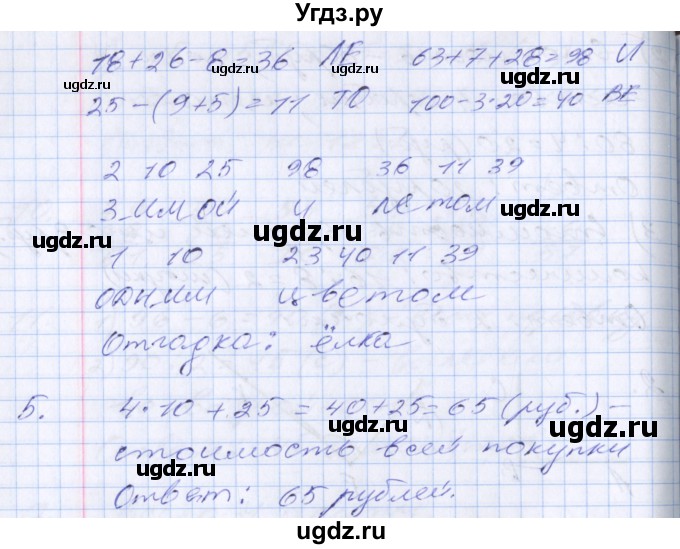 Угдз.ру
18+26-8=36 ЛЕ 63+7+28=98 И
25-(9+5)=11 ТО 100-3·20=40 ВЕ
2 10 25 98 36 11 39
Зимой и летом
1 10 23 40 11 39
одним цветом
Отгадка: ёлка
5. 4·10+25=40+25=65 (руб.) –
стоимость всей покупки
Ответ: 65 рублей.
ugdz.ru
ugdz.ru
ugdz.ru
ugdz.ru
ugdz.ru
ugdz.ru
ugdz.ru
ugdz.ru
ugdz.ru
ugdz.ru
ugdz.ru
ugdz.ru
ugdz.ru
ugdz.ru